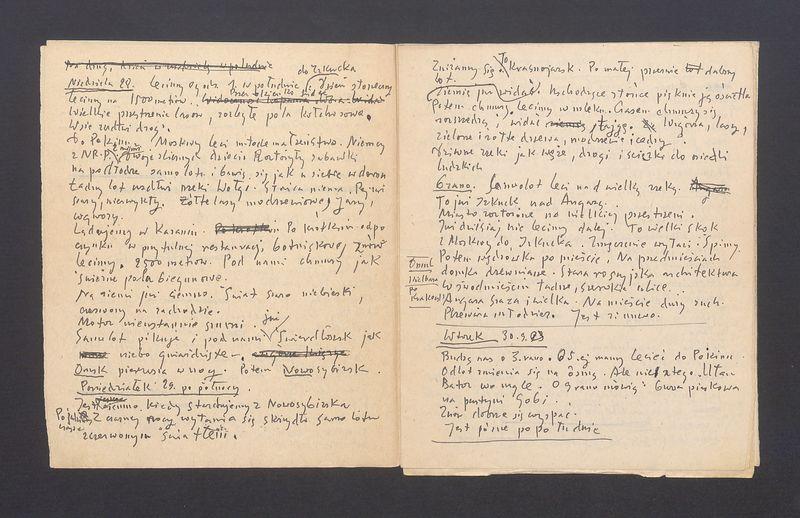 do Irkucka
Niedziela 29. Lecimy o godz. 1. w południe. Dzień słoneczny
Lecimy na 1500 metrów.
Wielkie przestrzenie lasów, rozległe pola kołchozowe.
Wsie wzdłuż drogi.
do Pekinu z Moskwy leci młode małżeństwo. Niemcy
z NRD. Dwoje ślicznych dzieci. Rozłożyły zabawki
na podłodze samolotu i bawią się jak u siebie w domu
Ładny lot wzdłuż rzeki Wołgi. Stroica niema, Pejzaż
szary, niewesoły. Żółte lasy modrzewiowe, jary,
wąwozy.
Lądujemy w Kazaniu. Po krótkim odpo
czynku w przytulnej restauracji lotniskowej znów
lecimy. 2500 metrów. Pod nami chmury jak
śnieżne pola biegunowe.
Na ziemi już ciemno. Świat szaro niebieski,
czerwony na zachodzie.
Motor nieustannie szumi.
już
Samolot pikuje i pod nami Swierdłowsk jak
niebo gwiaździste.
Omsk pierwsza w nocy. Potem Nowosybirsk.
Poniedziałek 29. po północy.
Jest ciemno, kiedy startujemy z Nowosybirska
Z czarnej nocy wyłania się skrzydło samolotu
z czerwonym światłem.
Zniżamy się. To Krasnojarsk. Po małej przerwie dalszy
lot.
Ziemię już widać. Wschodzące słońce pięknie ją oświetla
Potem chmury. Lecimy w mleku. Czasem chmury się
rozszedną i widać tajgę. Wzgórza, lasy,
zielone i żółte drzewa, modrzewie i cedry.
dziwne rzeki jak węże, drogi i ścieżki do osiedli
ludzkich
9 rano. Samolot leci nad wielką rzeką.
To już Irkuck nad Angarą.
Miasto rozłożone na wielkiej przestrzeni.
Już dzisiaj nie lecimy dalej. To wielki skok
z Moskwy do Irkucka. Zmęczenie wyłazi. Śpimy.
Potem wędrówka po mieście. Na przedmieściach
domki drewniane. Stara rosyjska architektura
W śródmieściu ładne, szerokie ulice.
Angara sina i wielka. Na mieście duży ruch.
Przeważa młodzież. Jest zimno.
Wtorek 30.9.
Budzą nas o 3. rano. O 5.ej mamy lecieć do Pekinu.
Odlot zmienia się na ósmą. Ale nic z tego. Ułan
Bator we mgle. O 9 rano mówią: burza piaskowa
na pustyni Gobi.
Znów dobrze się wyspać.
Jest późne popołudnie